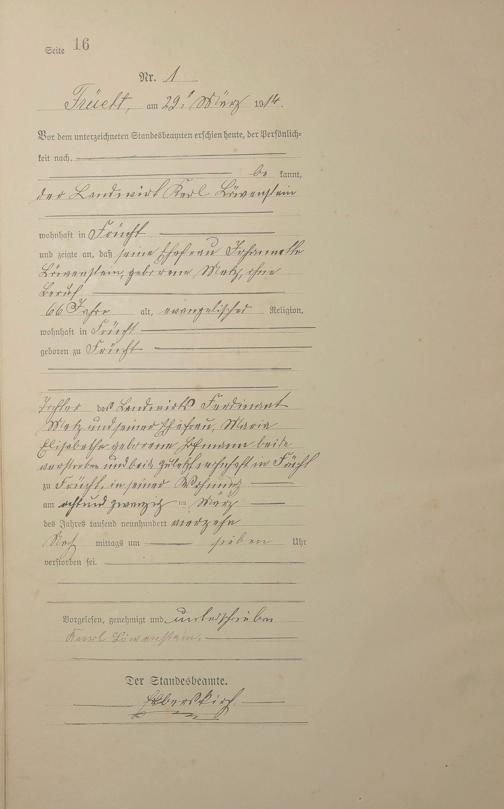 Seite 16
Nr. 1
Frücht, am 29. März 1914.
Vor dem unterzeichneten Standesbeamten erschien heute, der Persönlich-
keit nach,
be kannt,
der Landwirt Karl Löwenstein
wohnhaft in Frücht
und zeigte an, daß seine Ehefrau Johannette
Löwenstein, geborene Metz, ohne
Beruf
66 Jahre alt, evangelischer Religion,
wohnhaft in Frücht
geboren zu Frücht
Tochter des Landwirts Ferdinant
Metz und seiner Ehefrau, Maria
Elisabetha geborene Hofmann beide
verstorben und beide zuletzt wohnhaft in Frücht
zu Frücht in seiner Wohnung
am acht und zwanzig ten März
des Jahres tausend neunhundert vierzehn
Nach mittags um sieben Uhr
verstorben sei.
Vorgelesen, genehmigt und unterschrieben
Karl Löwenstein.
Der Standesbeamte.